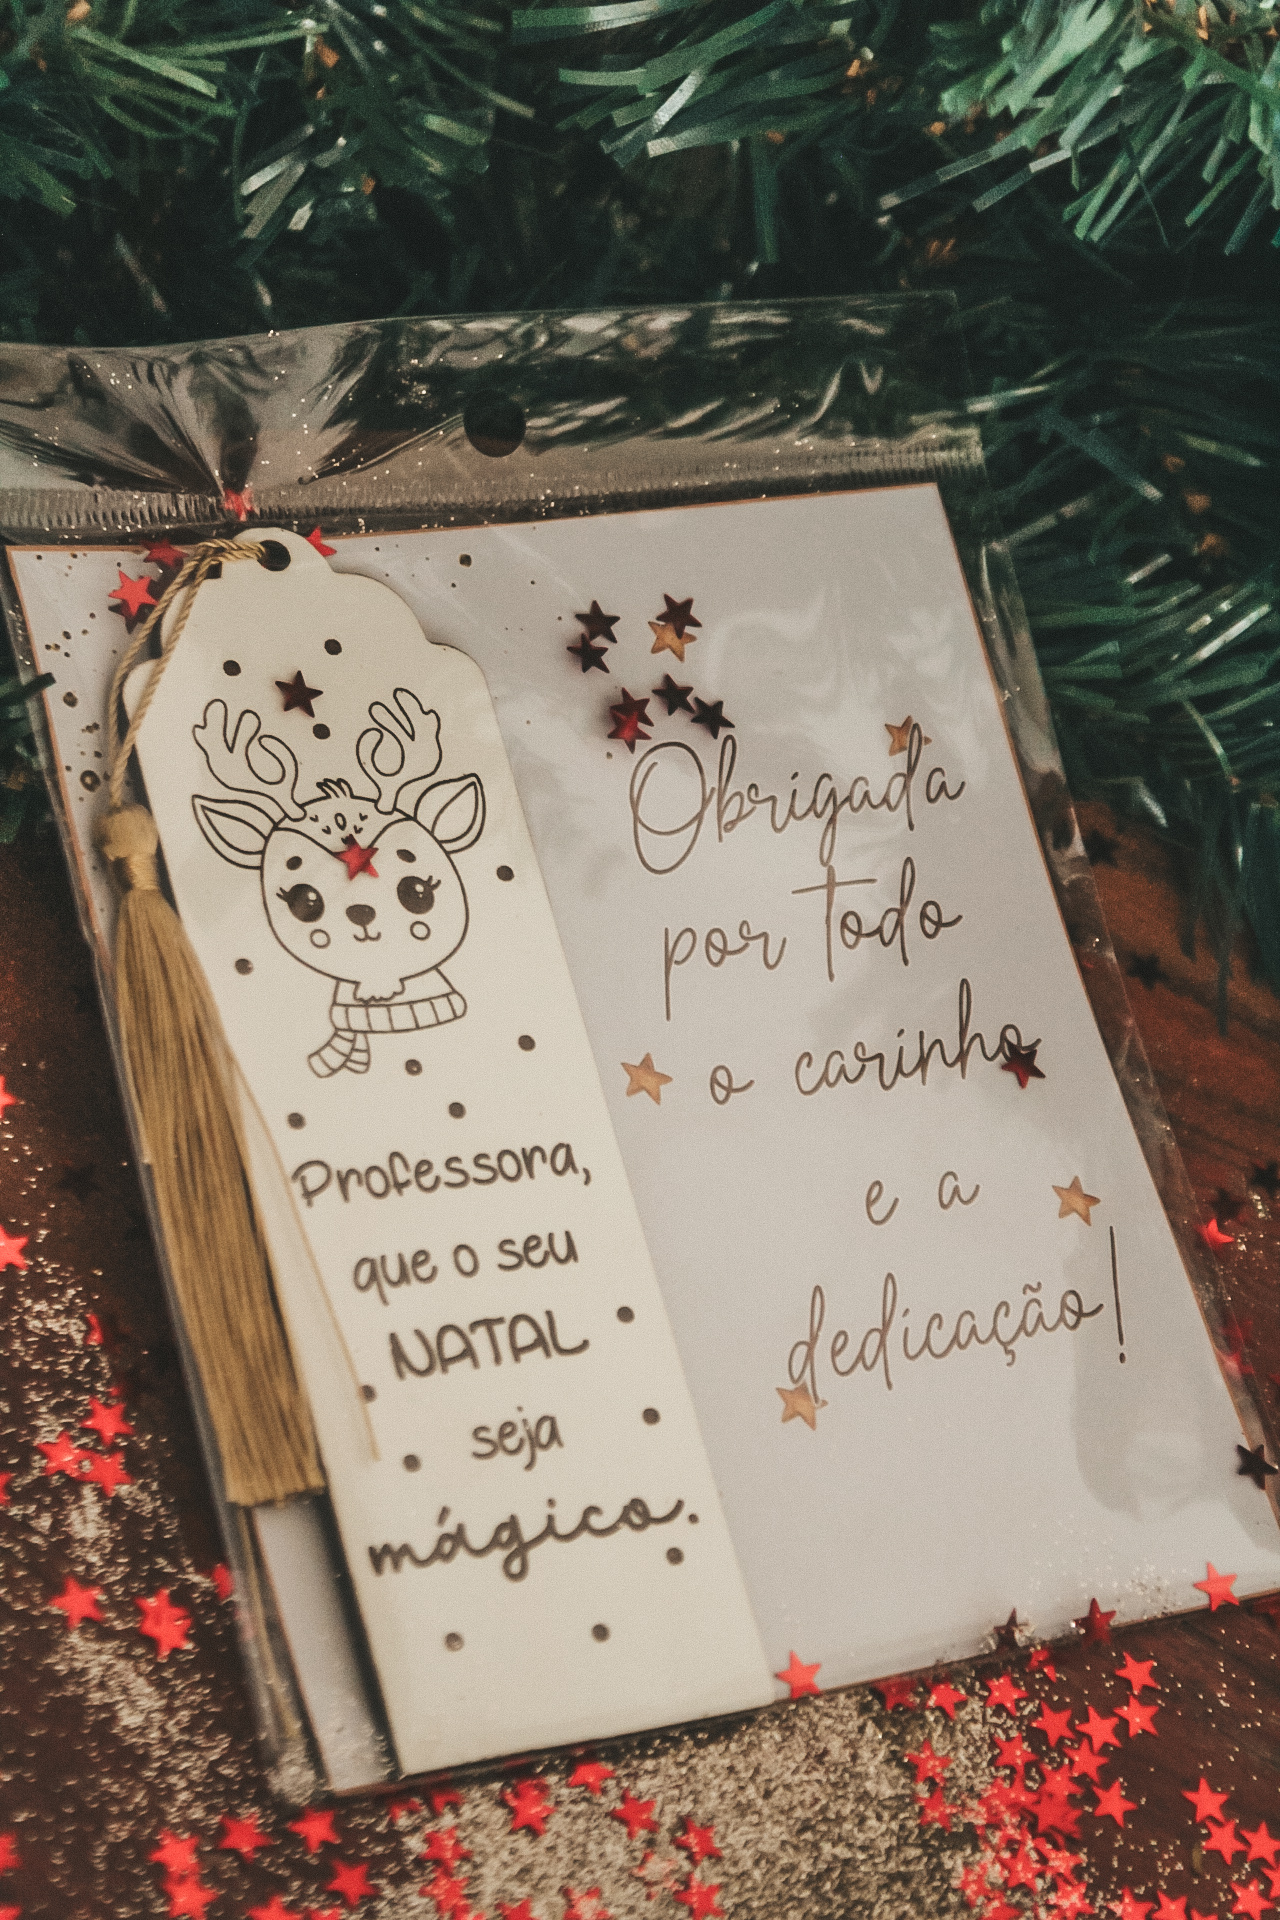 Professora,
que o seu
NATAL
seja
mágico.
Obrigada
por todo
o carinho
e a
dedicação!